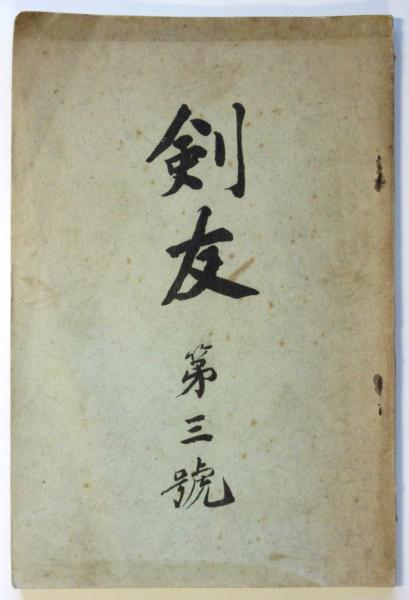 剣友
第三號